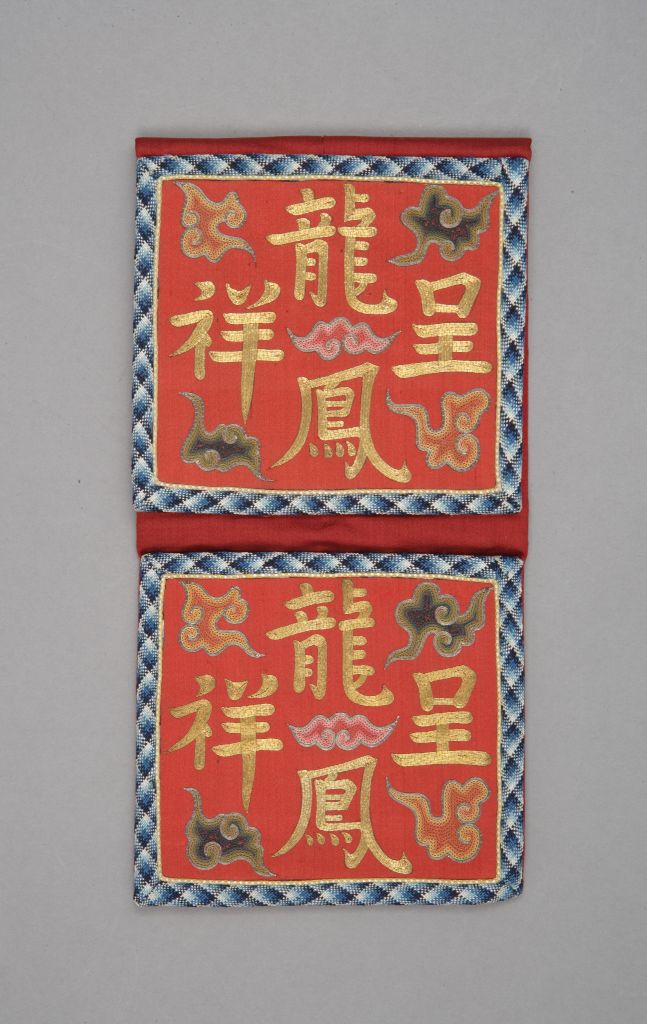 龍鳳呈祥
龍鳳呈祥